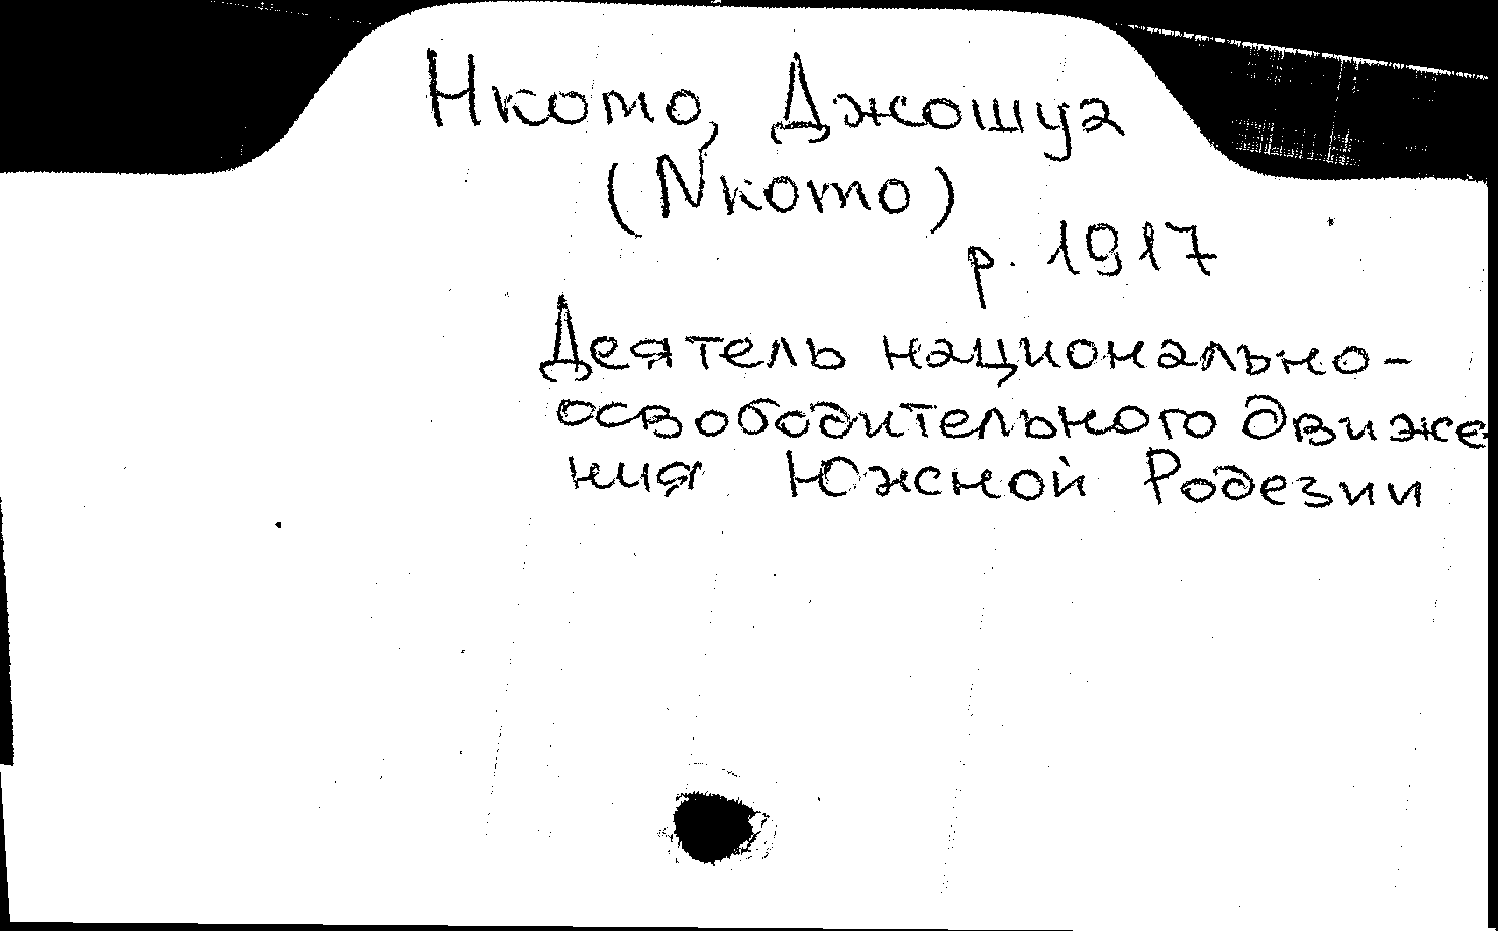 Нкото, Джошуа
(Nкото)
р. 1917
Деятель национально-
освободительного движе
ния Южной Родезии